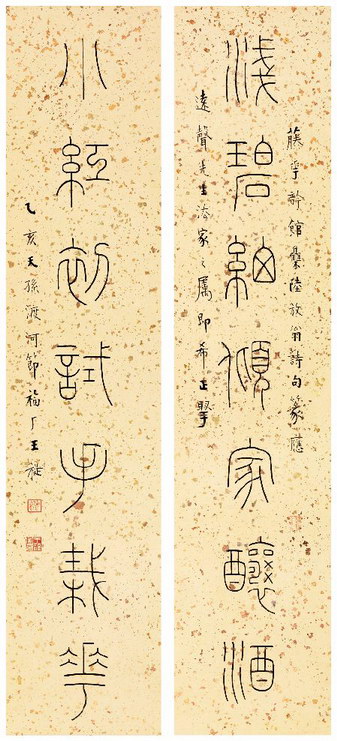 藤館集陸放翁詩句篆應
淺碧細傾家釀酒
遠聲先生法家之屬即希正擘
小紅初試手栽花
乙亥天孫渡河節福厂王禔